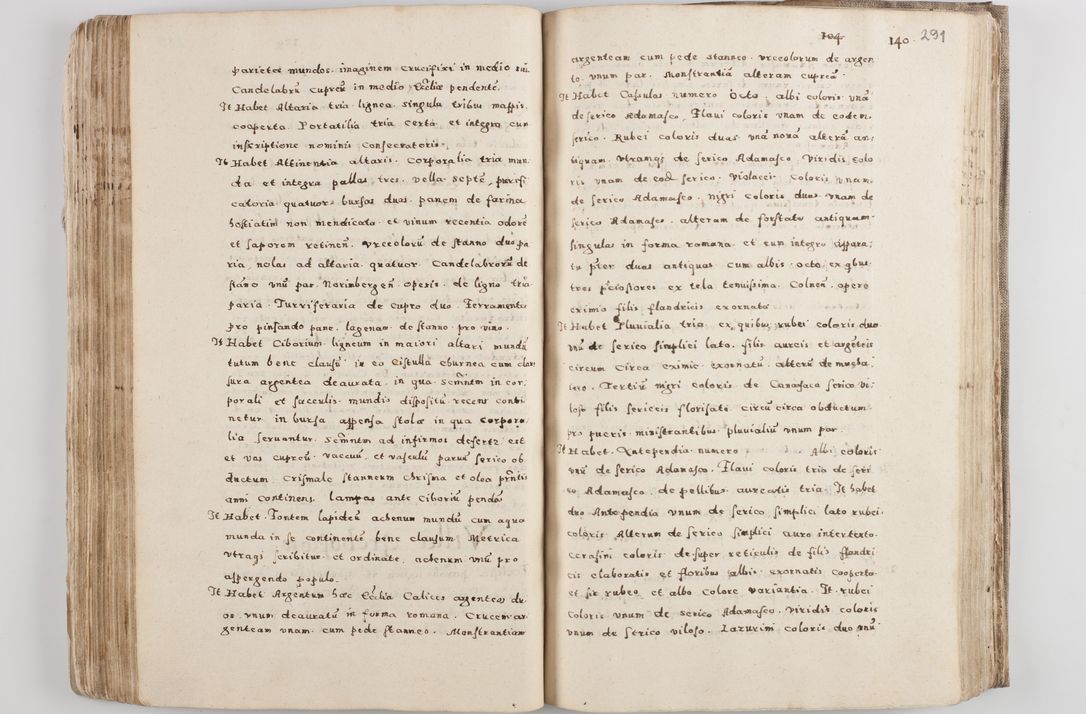 parietes mundos. imaginem crucifixi in medio sui.
Candelabrū cupreū in medio Ecclīa pendente.
It Habet Altaria tria lignea singula tribus mappis
cooperta Portatilia tria certa et integra cum
inscriptione nominis consecratoris.
It Habet Attinentia altaris. Corporalia tria mun
da et integra pallas tres. vella septē, purifi
catoria quatuor bursas duas. panem de farina
hostiatim non mendicato et vinum recentia odorē
et saporem retinen. vrceolorū de stanno duo pa
ria, nolas ad altaria quatuor Candelabrorū de
stāno vnū par Norimbergeñ operis. de ligno tria
paria. Turriferaria de cupro duo. Ferramenta
pro pinsando pane. lagenas de stanno pro vino.
It Habet Ciborium ligneum in maiori altari mundū
tutum bene clausū in eo Cistulla eburnea cum clau
sura argentea deaurata. in qua. in cor
porali et sacculis mundis dispositū recens conti
netur in bursa appensa stolæ in qua corpora
lia seruantur. ad infirmos defertr est
et vas cupreū vacuū, et vasculū paruū serico ob
ductum. Crismale stanneum Chrisma et olea
anni continens. lampas ante Ciboriū pendes
It Habet Fontem lapideū achenum mundū cum aqua
munda in se continentē bene clausum Metrica
vtraqȝ scribitur et ordinate, achenum vnū pro
aspergendo populo.
It Habet Argentum hæc Ecclīa Calices argenteos du
os. vnum deauratū in forma romana. Crucem ar
genteam vnam cum pede stanneo. Monstrantiam
104 140. 291
argenteam cum pede stanneo vrceolorum de argen
to. vnum par Monstrantiā alteram cupreā
It Habet Casulas numero Octo. albi coloris vnā
de serico Adamasco, Flaui coloris vnam de eodem
serico. Rubei coloris duas vnā nouā alterā an:
tiquam vtramqȝ de serico Adamasco viridis colo
ris vnam de eod serico. violacei Coloris vnam
de serico Adamasco. nigri coloris duas vnam de
serico Adamasco. alteram de forstatu antiquam
singulas in forma romana et cum integro appara:
tu duas antiquas cum albis octo, ex qbus
tres ex tela tenuissima. Colneñ. opere
eximio filis flandricis exornatæ
It Habet Pluuialia tria ex quibus rubei coloris duo
vnū de serico simplici lato. filis aureis et argēteis
circum circa eximie exornatū alterū de
Tertiū nigri coloris de Canafaca serico vi:
loso filis sericeis florisato circū circa obductum
pro pueris ministrantibus pluuialiū vnum par.
It Habet Antependia numero Albi coloris
vnū de serico Adamasco. Flaui coloris tria de seri
co Adamasco. de pellibus aureatis tria. It habet
duo Antependia vnum de serico simplici lato rubei
coloris Alterum de serico simplici auro intertexto
cerasini coloris desuper reticulis de filis flandri
cis elaboratis et floribus albis exornatis cooperto
et sic rubeo et albo colore variantia. It. rubei
coloris vnum de serico Adamasco. viridis coloris
vnum de serico viloso. Lazurini coloris duo vnū